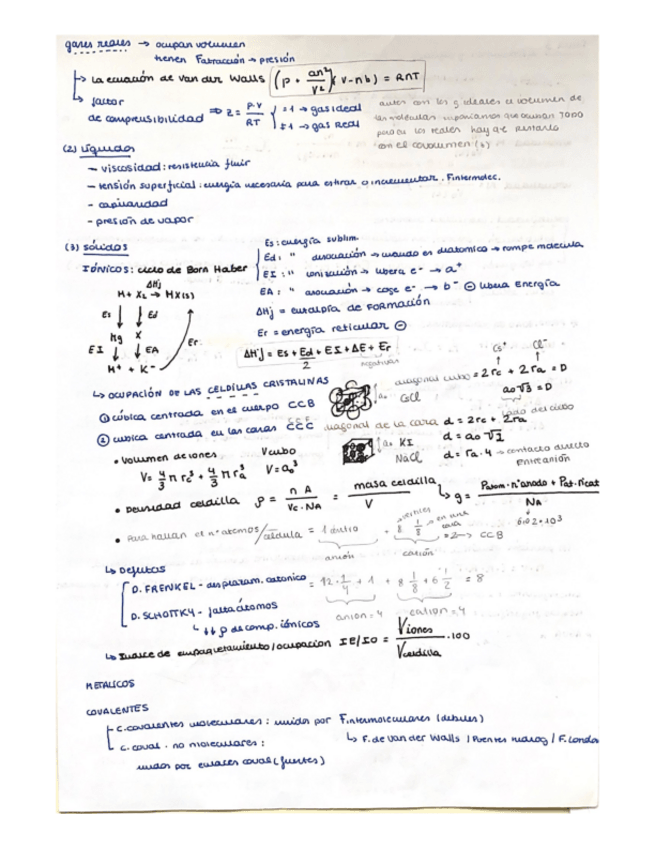 gases reales → ocupan volumen
tienen Fatracción → presión
↳ la ecuación de van der Walls (p + an²/V²)(V-nb) = RnT
↳ factor de compresibilidad ⇒ Z = P·V/RT { =1 → gas ideal
≠1 → gas Real
antes con los g ideales el volumen de
las moléculas suponíamos que ocupan TODO
para los reales hay que restarlo
con el covolumen (b)
(2) líquidos
- viscosidad: resistencia fluir
- tensión superficial: energía necesaria para estirar o incrementar. Fintermolec.
- capilaridad
- presión de vapor
(3) sólidos
IÓNICOS: ciclo de Born Haber
ΔHf
M + X₂ → MX(s)
Es ↓ ↓ Ed
Mg X
EI ↓ ↓ EA Er
M⁺ + K⁻
Es: energía sublim.
Ed: " disociación → cuando es diatomico → rompe molecula
EI: " ionización → libera e⁻ → a⁺
EA: " asociación → coge e⁻ → b⁻ ⊖ libera energía
ΔHf = entalpía de FORMACIÓN
Er = energía reticular ⊖
ΔHf = Es + Ed/2 + EI + ΔE + Er
negativas
↳ OCUPACIÓN DE LAS CELDILLAS CRISTALINAS
① cúbica centrada en el cuerpo CCB
a₀
diagonal cubo = 2rc + 2ra = D
Cs⁺ Cl⁻
a₀√3 = D
lado del cubo
② cubica centrada en las caras CCC
diagonal de la cara d = 2rc + 2ra
a₀ KI
NaCl
d = a₀√2
d = ra·4 → contacto directo
• Volumen de iones
V = 4/3 π rc³ + 4/3 π ra³
Vcubo
V = a₀³
• Densidad celdilla ρ = n A / Vc·NA = masa celdilla / V
↳ g = Patom·nºanod + Pat.nºcat / NA
6'02·10³
• Para hallar el nº atomos/céldula = 1 centro + 8 1/8 = 2 → CCB
vertices
anión catión
↳ Defectos
D. FRENKEL - desplazam. cationico
= 12·1/4 + 1 + 8 1/8 + 6 1/2 = 8
anion = 4 cation = 4
D. SCHOTTKY - falta átomos
↳ ↓↓ ρ de comp. iónicos
↳ Indice de empaquetamiento/ocupacion IE/IO = Viones/Vceldilla ·100
METALICOS
COVALENTES
C. covalentes moleculares: unidos por F.intermoleculares (debiles)
↳ F. de Van der Walls / Puentes hidrog / F. London
C. coval. no moleculares:
unidos por enlaces coval (fuertes)